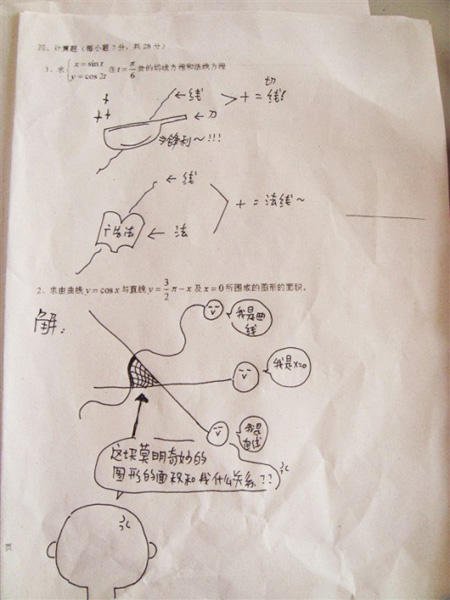 四、计算题（每小题7分，共28分）
1. 求 { x = sin t
y = cos 2t 在 t = π/6 处的切线方程和法线方程
← 线
切
+ = 线!
← 刀
锋利~!!!
← 线
+ = 法线~
广告法
← 法
2. 求由曲线 y = cos x 与直线 y = 3/2 π − x 及 x = 0 所围成的图形的面积。
解:
我是曲线
我是x=0
我是直线
这块莫明奇妙的
图形的面积和我什么关系??